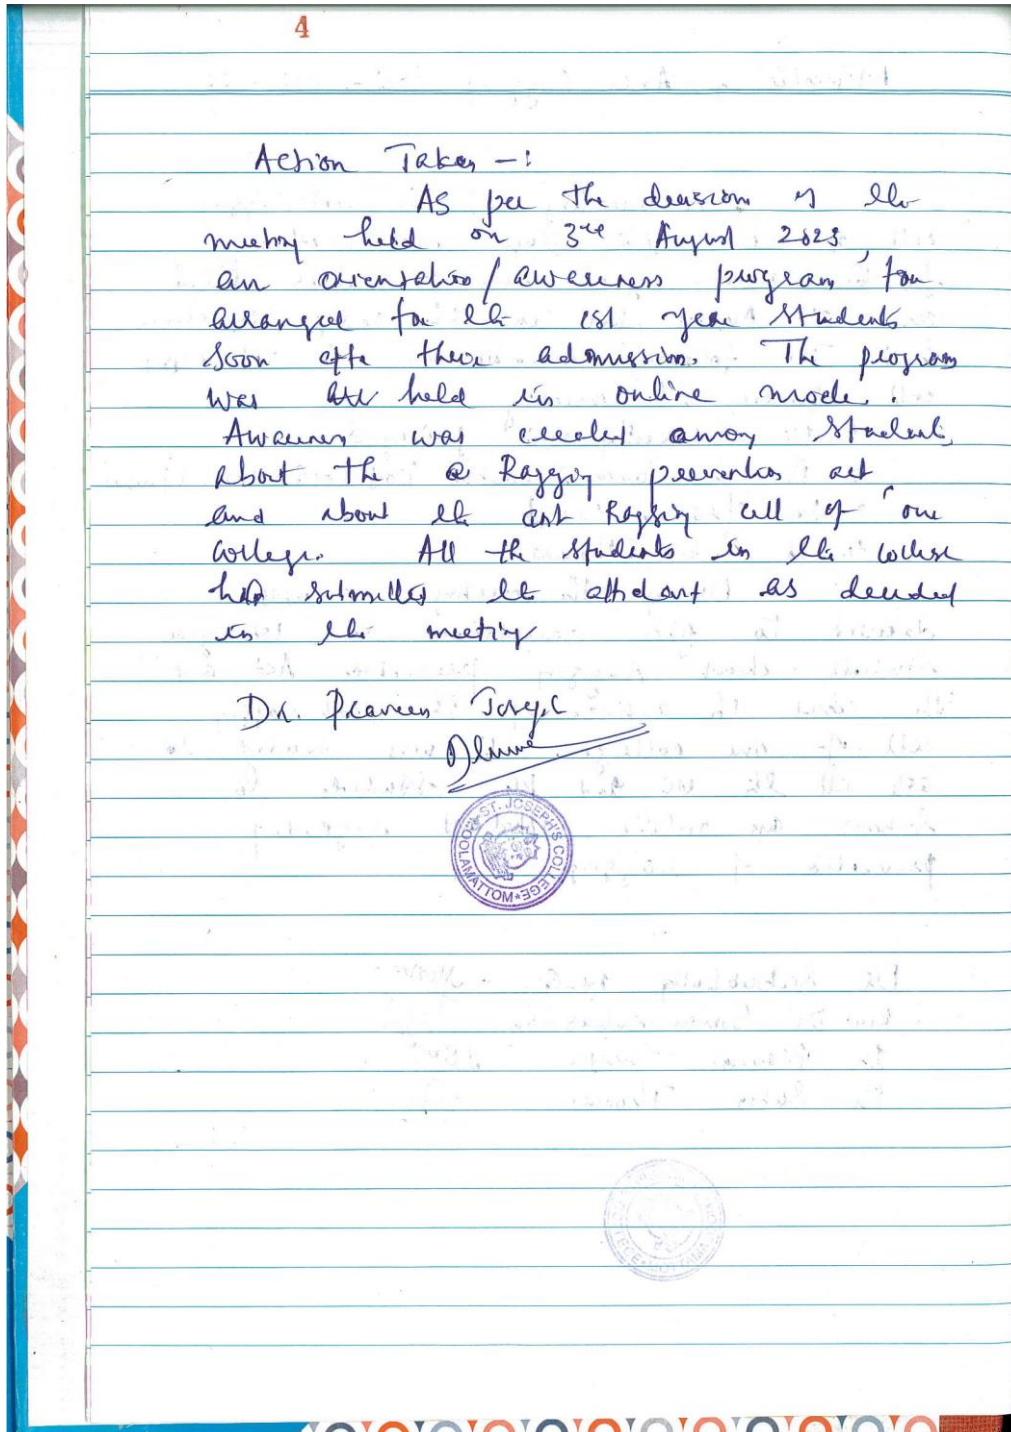 4
Action Taken -:
As per the decision of the
meeting held on 3rd August 2023,
an orientation/awareness program
arranged for the 1st year students
soon after there admission. The program
was held in online mode.
Awareness was created among students
about the Ragging prevention act
and about the anti Ragging cell of our
college. All the students in the college
had submitted the affidavit as decided
in the meeting
Dr. Praveen Joseph
ST. JOSEPH'S COLLEGE * MOOLAMATTOM *